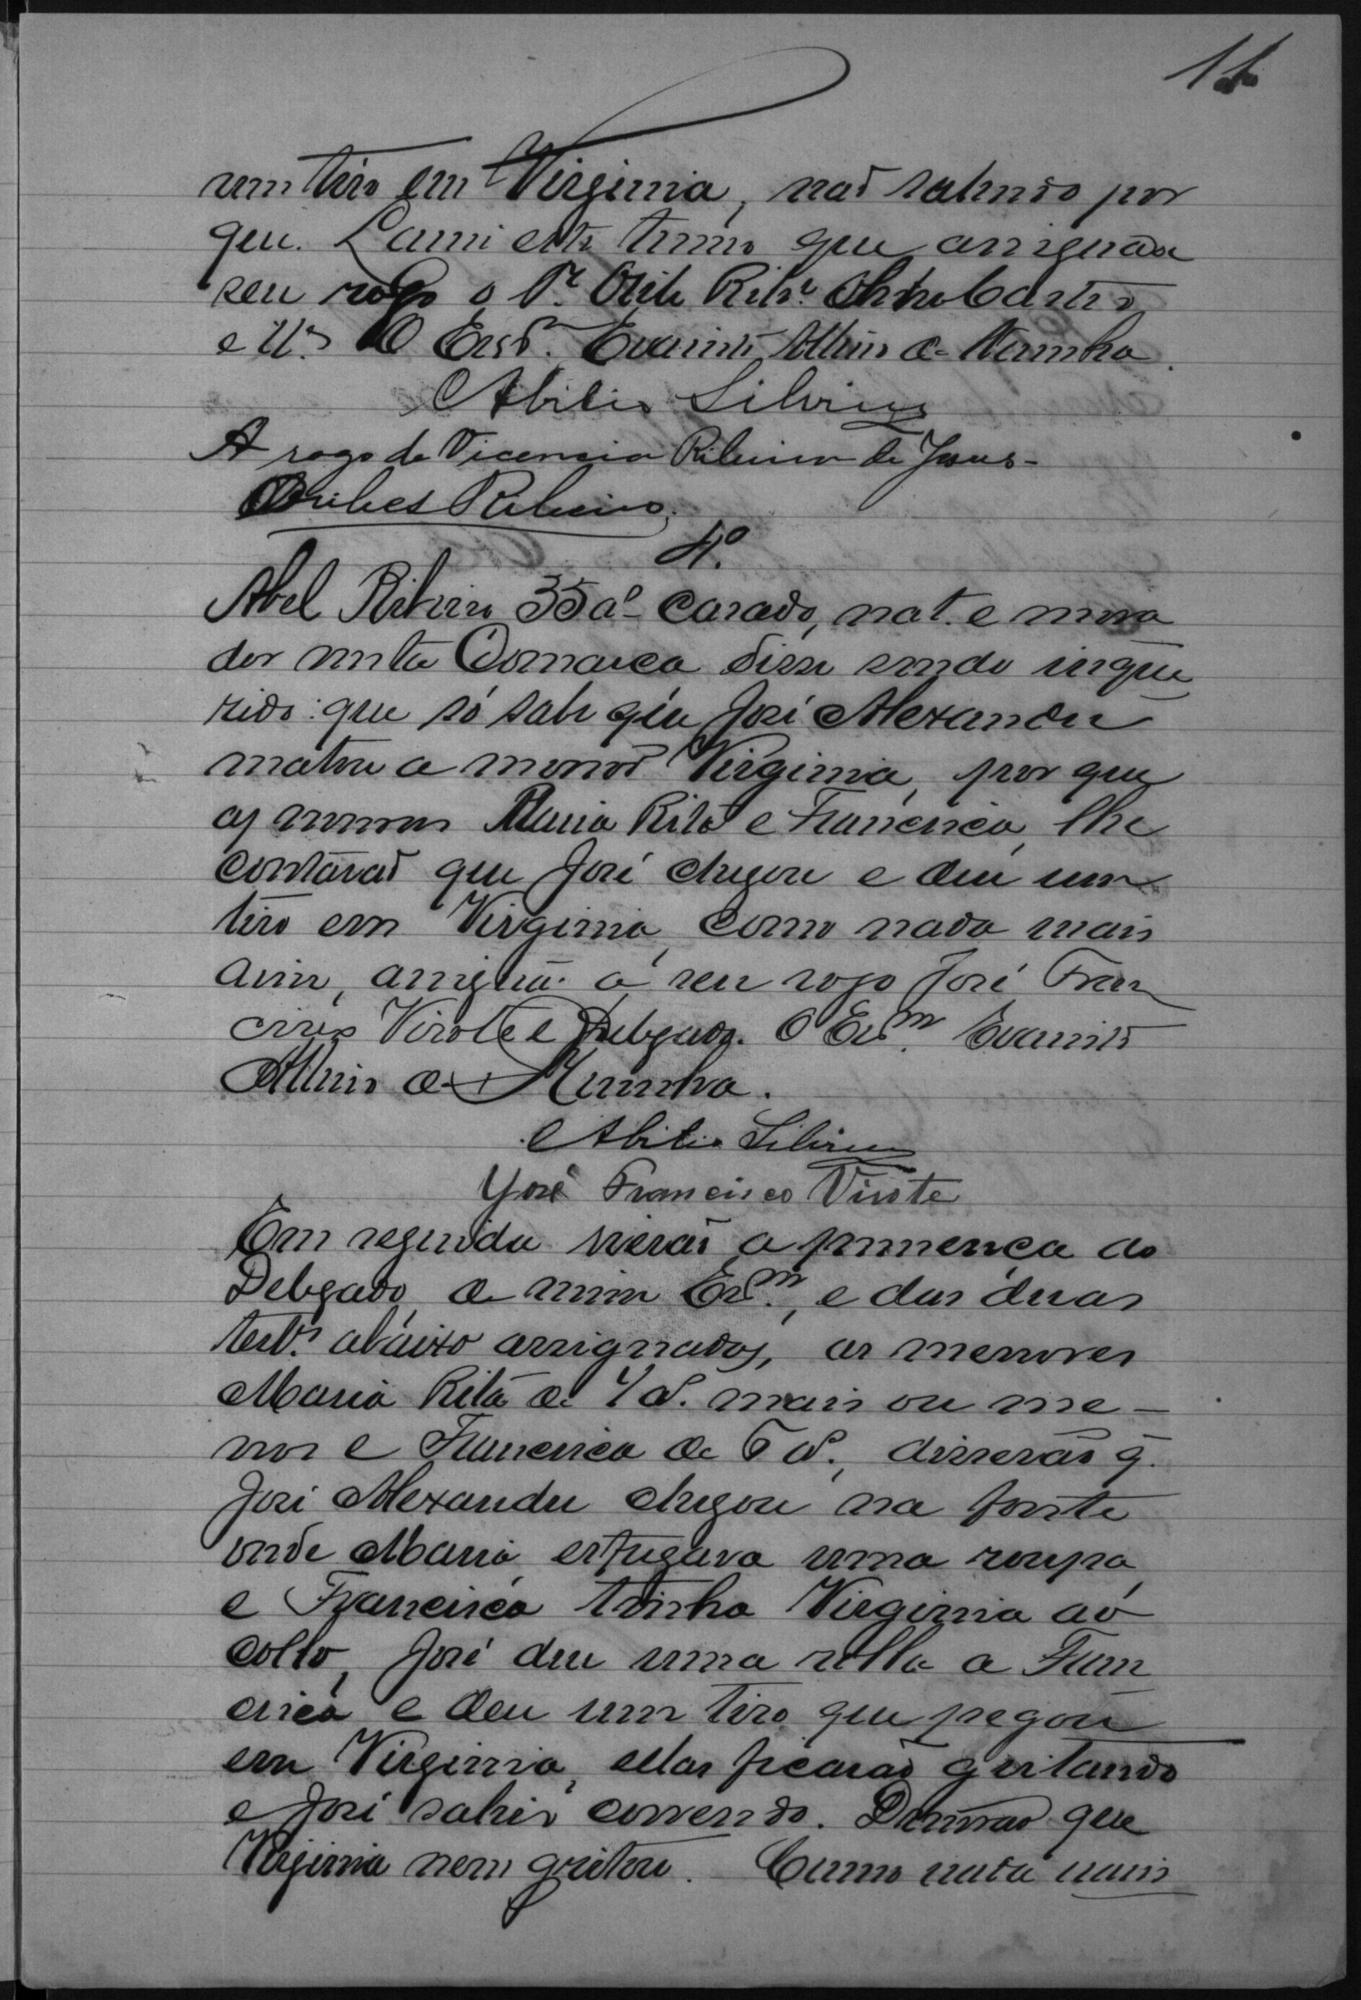 um tiro em Virginia, naõ sabendo por
que. Lavrei este termo que assignão a
seu rogo o
e Eu, O Escr.m Evaristo de
Abilio Silverius
A rogo de Vicencia Ribeiro de Jesus-
Ribeiro.
4º
Abel Ribeiro 35 aº casado, nat. e mora
dor nesta Comarca disse sendo inque
rido: que só sabe que José Alexandre
matou a menor Virginia, por que
as menores Maria Rita e Francisca, lhe
contáraõ que José chegou e deu um
tiro em Virginia, como nada mais
disse, assigna a seu rogo José Fran
cisco Virote e Delegado. O Escm. Evaristo
de
Abilio Silverius
José Francisco Virote
Em seguida vieraõ a presença do
Delegado, de mim Escm., e das duas
test.as abáixo assignados, as menores
Maria Rita de 7 aº. mais ou me-
nos e Francisca de 5 aº., disseraõ q.
José Alexandre chegou na fonte
onde Maria esfregava uma roupa,
e Francisca tinha Virginia aó
collo, José deu uma rolha a Fran
cisca e deu um tiro que pegou
em Virginia, ellas ficaraõ gritando
e José sahio correndo. Disseraõ que
Virginia nem gritou. Como nada mais